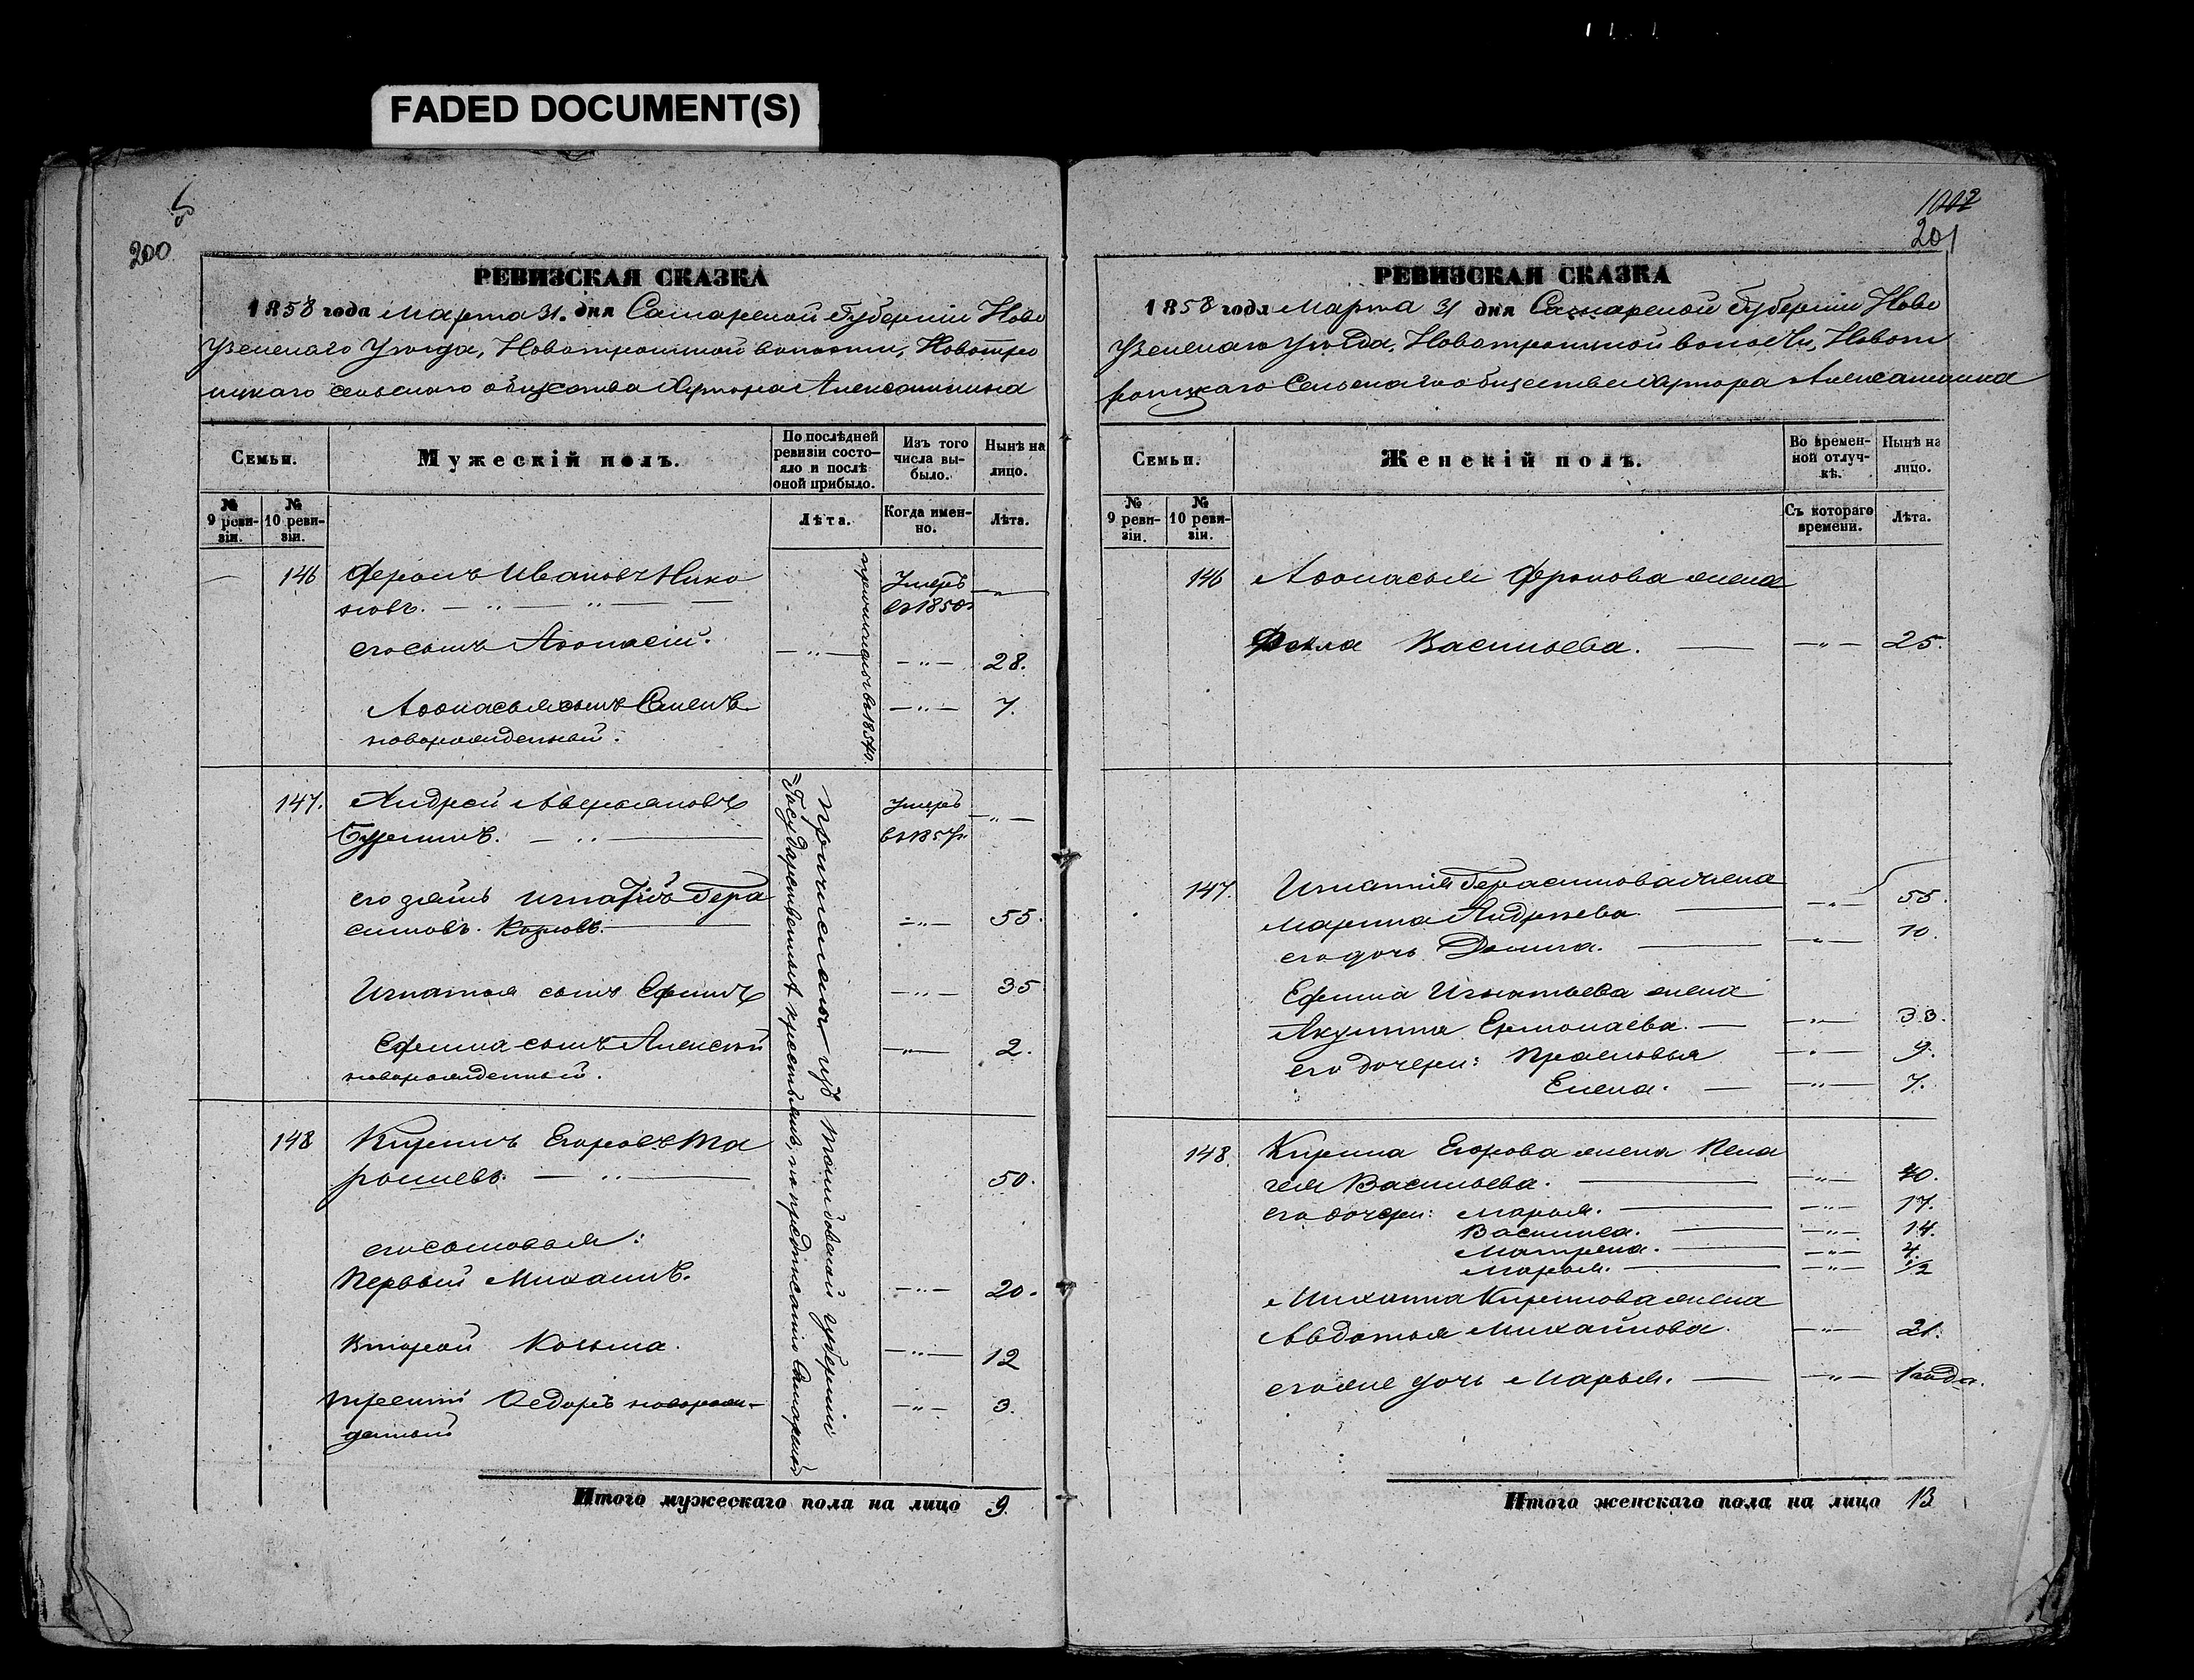 FADED DOCUMENT(S)
200
РЕВИЗСКАЯ СКАЗКА
1858 года Марта 31. дня Самарской Губерніи Ново
узенскаго Уѣзда, Новотроицкой волости, Новотро
ицкаго сельскаго общества Хутора Алексашкина
Семьи.
Мужескій полъ.
По послѣдней ревизіи состояло и послѣ оной прибыло.
Изъ того числа выбыло.
Нынѣ на лицо.
№ 9 ревизіи.
№ 10 ревизіи.
Лѣта.
Когда именно.
Лѣта.
146 Фролъ Ивановъ Нико
новъ. Умеръ
въ 1850г
его сынъ Афонасій. 28.
Афонасья сынъ Семенъ 7.
новорожденный.
147. Андрей Аверьяновъ Умеръ
въ 1857г.
его зять Игнатій Гера
симовъ. Козловъ. 55.
Игнатья сынъ Ефимъ 35
Ефима сынъ Алексѣй 2.
новорожденный.
причислены изъ губерніи
Государственныхъ крестьянъ, по предписанію Самарской
148 Кирилъ Егоровъ Та
50.
его сыновья:
Первый Михаилъ. 20.
Второй Козьма. 12
третій Ѳедоръ новорож-
денный 3.
Итого мужескаго пола на лицо 9.
1002
201
РЕВИЗСКАЯ СКАЗКА
1858 года Марта 31 дня Самарской Губерніи Ново
узенскаго уѣзда, Новотроицкой волости, Новот
роицкаго Сельскаго общества Хутора Алексашкина
Семьи.
Женскій полъ.
Во временной отлучкѣ.
Нынѣ на лицо.
№ 9 ревизіи.
№ 10 ревизіи.
Съ котораго времени.
Лѣта.
146 Афонасья Фролова жена
Фекла Васильева. 25.
147. Игнатія Герасимова жена
Марина Андрѣева 55.
его дочь Домна. 10.
Ефима Игнатьева жена
Акулина Ермолаева. 33.
его дочери: Прасковья 9.
Елена. 7.
148. Кирила Егорова жена Пела
гея Васильева. 40.
его дочери: Марья. 17.
Василиса. 14.
Матрена. 4.
Марья. 1/2
Михаила Кирилова жена
Авдотья Михайлова. 21.
его же дочь Марья. 1 года.
Итого женскаго пола на лицо 13